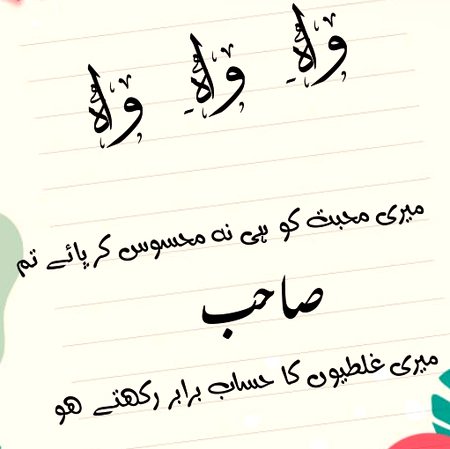 واہ واہِ واہِ
میری محبت کو ہی نہ محسوس کر پائے تم
صاحب
میری غلطیوں کا حساب برابر رکھتے ھو